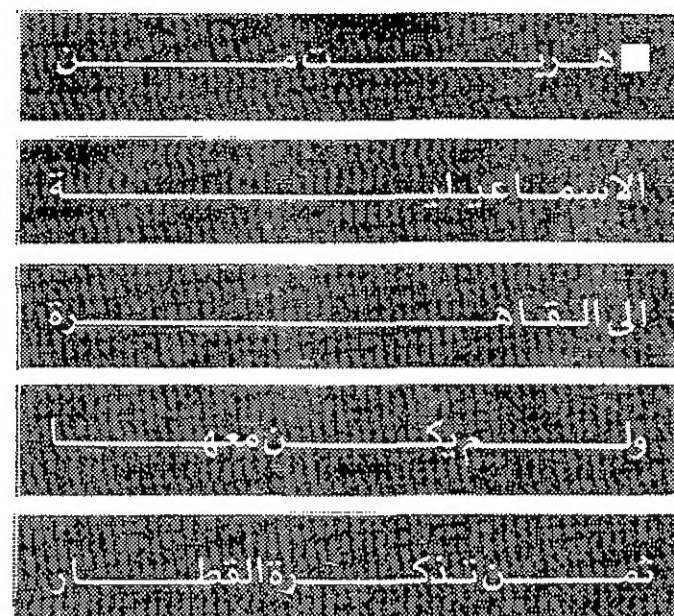 ■ هربت من
الاسماعيلية
الى القاهرة
ولم يكن معها
ثمن تذكرة القطار